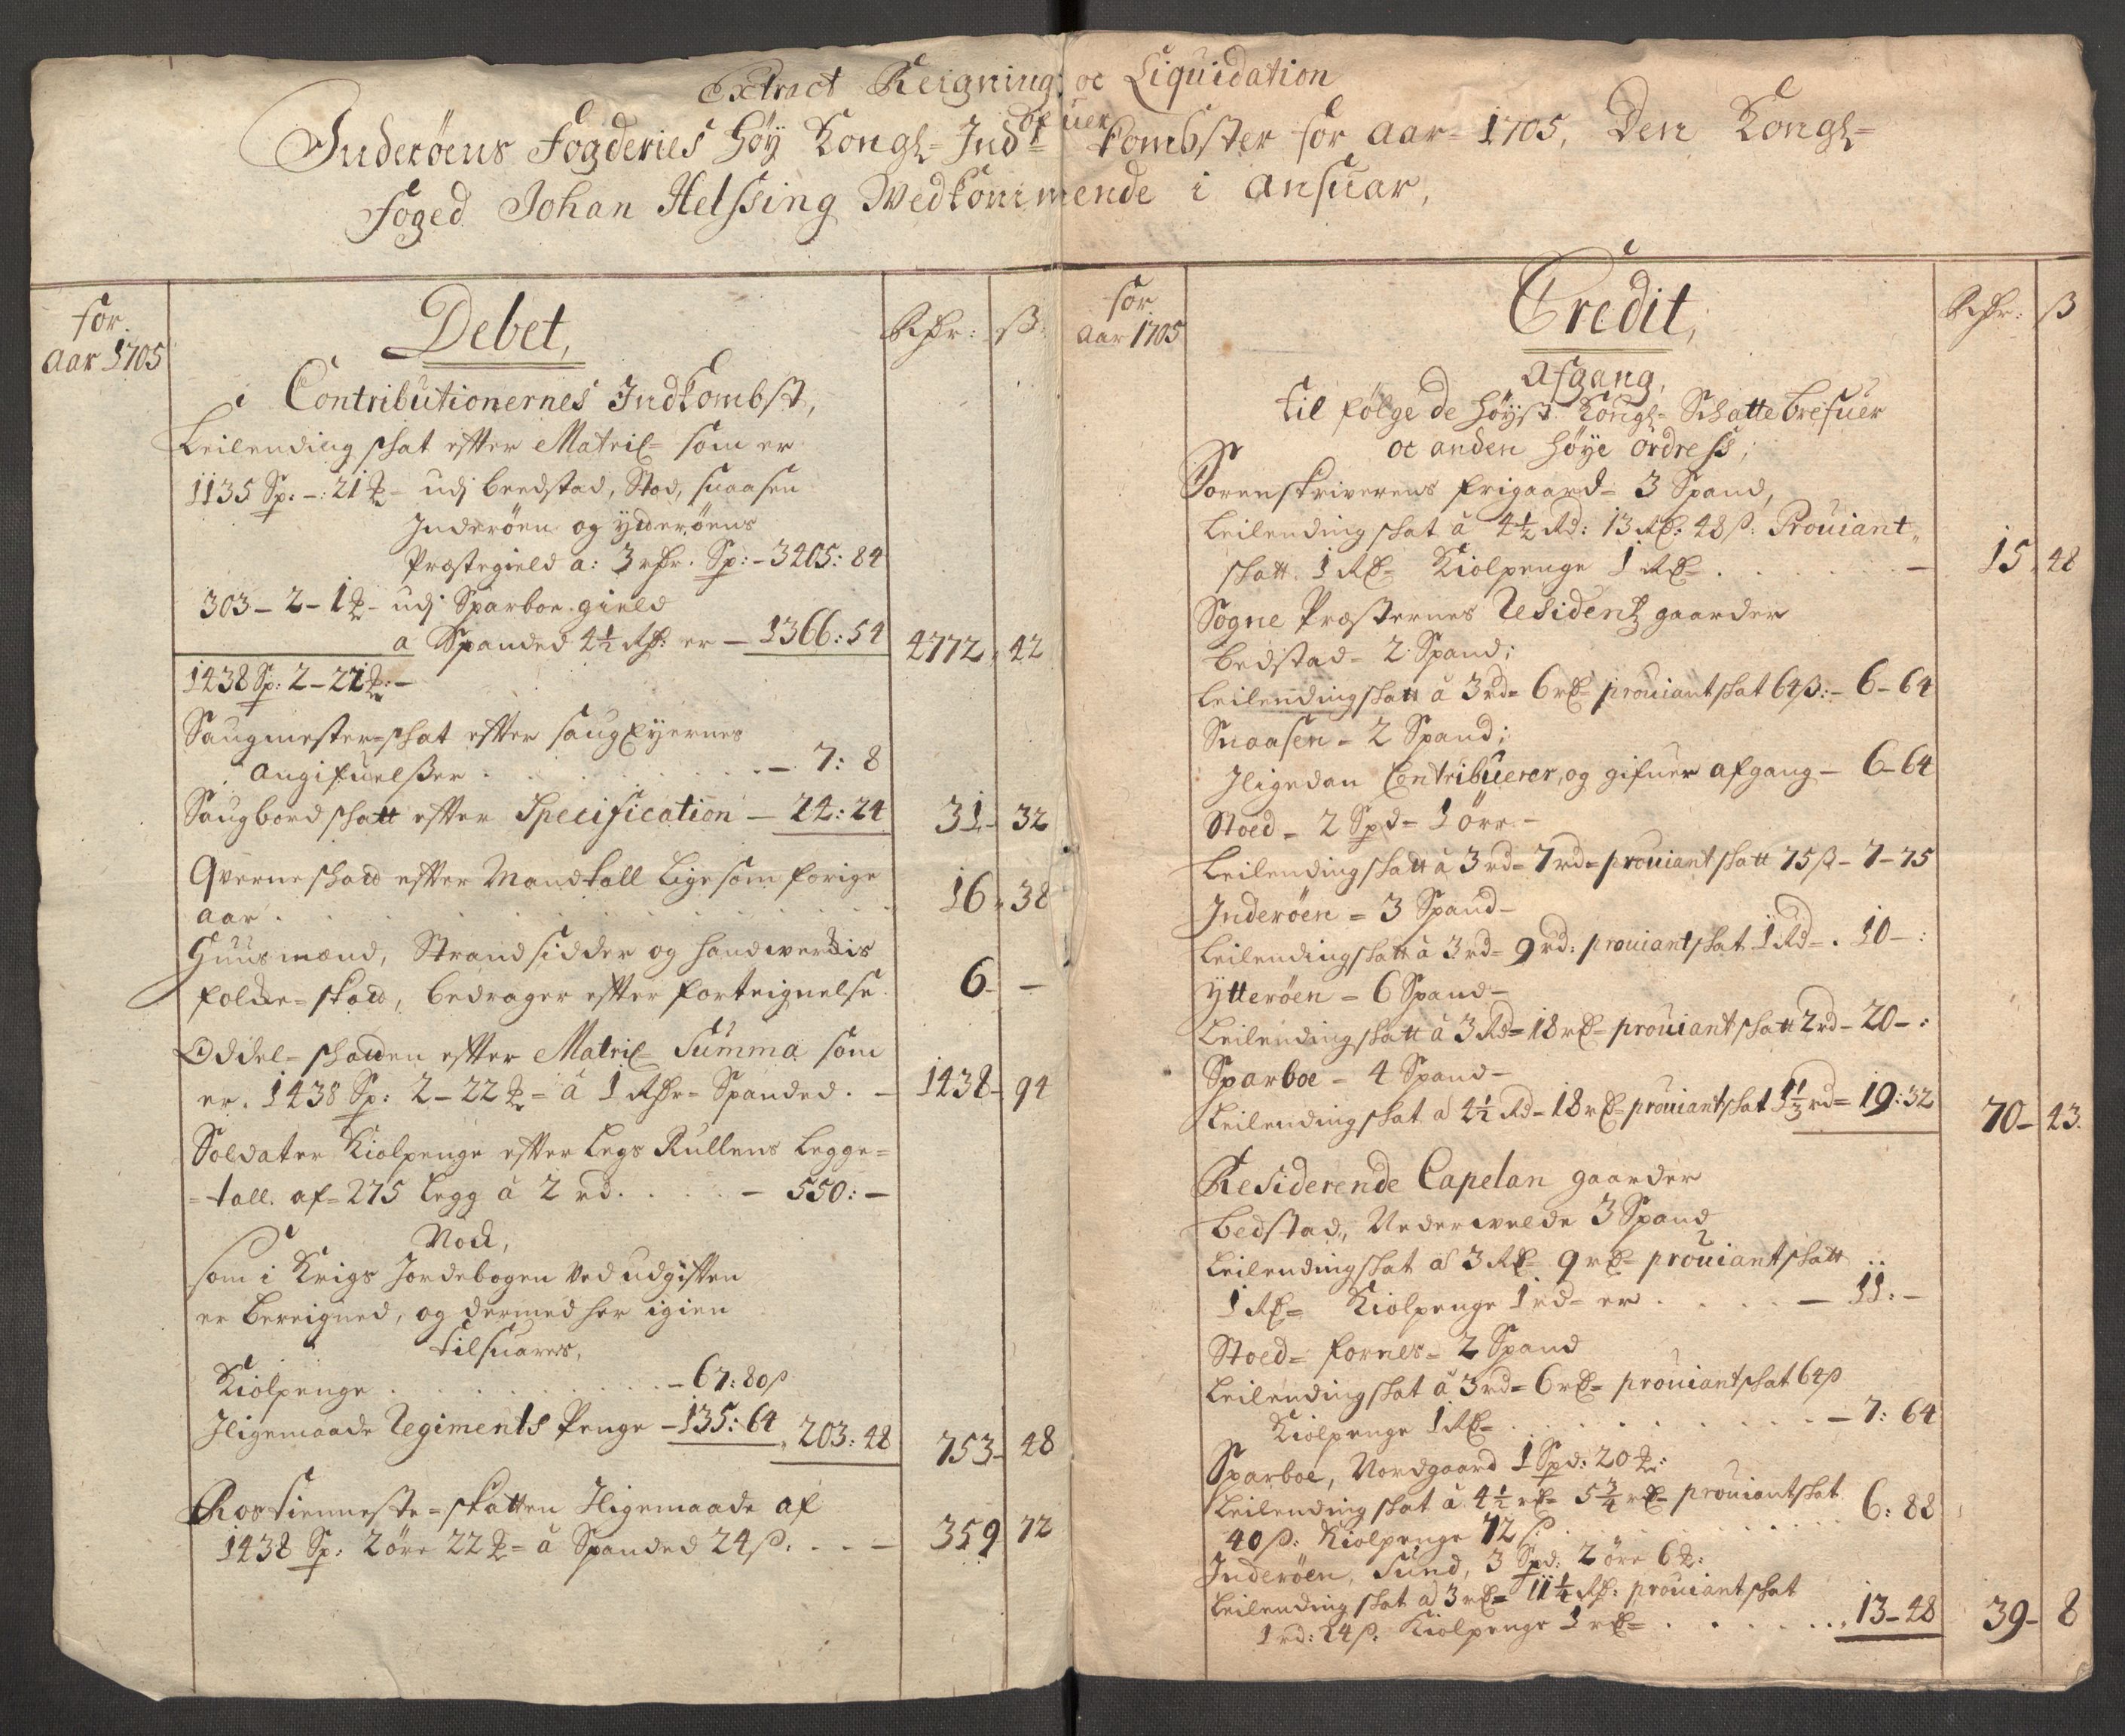 Extract Reigning oc Liquidation
ofuer
Inderöens Fogderies Höÿ Kongl= Ind= kombster for aar= 1705, Den Kongl=
Foged Johan Helssing Wedkommende i ansuar,
for
aar 1705
Debet,
Rdr: ß:
Contributionernes Indkombst,
Leilending skat efter Matril= som er
1135 Sp: -: 21 udj beedstad, Stod, snaasen
Inderöen og ÿtteröens
Præstegield a: 3 rdr. Sp: - 3405: 84
303 - 2 - 1 - udj Sparboe gield
a Spanded 4½ Rd: er - 1366: 54 4772 - 42
1438 Sp: 2 - 22 : -
Saugmester=skat efter saugEÿernes
angifuelßer . - 7: 8
Saugbord skatt efter Specification - 24: 24 31 - 32
Qverne skatt efter Mandtall Lige som forige
aar . 16 - 38
Huusmænd, Strandsidder og handtverckis
folcke= skatt, bedrager efter forteignelse 6 - -
Oddel= skatten efter Matril= Summa som
er. 1438 Sp: 2 - 22 = â 1 Rdr= Spanded. - 1438 - 94
Soldater Kiolpenge efter Legs Rullens Legge=
=tall. af= 275 Legg â 2 rd. - 550: -
Nock,
som i Krigs Jordebogen ved udgiften
er bereigned, og dermed her igien
tilsuares,
Kiolpenge . - 67: 80 ß
Iligemaade Regiments Penge - 135: 64 203: 48 753 - 48
Rostienneste= skatten Iligemaade af
1438 Sp: 2 öre 22 = â Spanded 24 ß. - 359 72
for
aar 1705
Credit,
Rdr: ß
Afgang,
til følge de höÿst Kongl= Skatte brefuer
oc anden höÿe ordress;
Sorenskriverens frigaard= 3 Spand,
Leilending skat â 4½ Rd: 13 Rd: 48 ß: Prouiant=
skatt. 1 Rd= Kiolpenge 1 Rd= . - 15 - 48
Sogne Præsternes Residentz gaarder
bedstad= 2 Spand;
Leilending skatt â 3 rd= 6 rd= prouiant skat 64 ß: - 6 - 64
Snaasen= 2 Spand;
Iligedan Contribuerer, og gifuer afgang - 6 - 64
Stoed= 2 Spd= 1 öre -
Leilending skatt â 3 rd= 7 rd= prouiant skatt 75 ß - 7 - 75
Inderöen= 3 Spand -
Leilending skatt â 3 rd= 9 rd: prouiant skat 1 Rd= . 10 - :
ÿtteröen= 6 Spand -
Leilending skatt â 3 Rd= 18 rd= prouiant skatt 2 rd - 20 - :
Sparboe - 4 Spand -
Leilending skat a 4½ Rd= 18 rd= prouiant skat 1⅓ rd= 19: 32 70 - 43.
Residerende Capelan gaarder
bedstad, Nederwelde 3 Spand
Leilending skat a 3 Rd= 9 rd= prouiant skatt
1 Rd= Kiolpenge 1 rd= er . - 11: -
Stoed= fornes= 2 Spand
Leilending skat â 3 rd= 6 rd= prouiant skat 64 ß
Kiolpenge 1 Rd= . - 7: 64
Sparboe, Nordgaard 1 Spd: 20 :
Leilending skat â 4½ rd= 5¾ rd= prouiant skat
40 ß: Kiolpenge 72 ß: . 6: 88
Inderöen, Sund, 3 Spd: 2 öre 6 :
Leilending skat a 3 rd= 11¼ Rd: prouiant skat
1 rd: 24 ß. Kiolpenge 1 rd= . 13 - 48 39 - 8